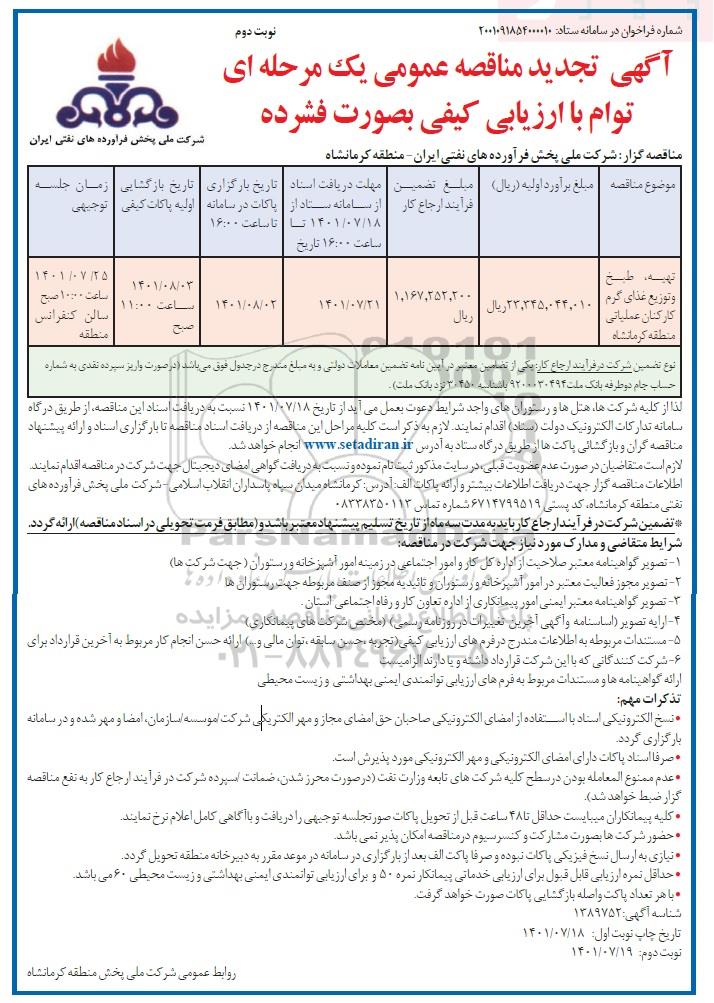 شماره فراخوان در سامانه ستاد: ۲۰۰۱۰۹۱۸۵۴۰۰۰۰۱۰
نوبت دوم
آگهی تجدید مناقصه عمومی یک مرحله ای
توام با ارزیابی کیفی بصورت فشرده
شرکت ملی پخش فرآورده های نفتی ایران
مناقصه گزار: شرکت ملی پخش فرآورده های نفتی ایران - منطقه کرمانشاه
موضوع مناقصه
مبلغ برآورد اولیه (ریال)
مبلغ تضمین فرآیند ارجاع کار
مهلت دریافت اسناد از سامانه ستاد از ۱۴۰۱/۰۷/۱۸ تا ساعت ۱۶:۰۰ تاریخ
تاریخ بارگزاری پاکات در سامانه تا ساعت ۱۶:۰۰
تاریخ بازگشایی اولیه پاکات کیفی
زمان جلسه توجیهی
تهیه، طبخ وتوزیع غذای گرم کارکنان عملیاتی منطقه کرمانشاه
۲۳,۳۴۵,۰۴۴,۰۱۰ریال
۱,۱۶۷,۲۵۲,۲۰۰ ریال
۱۴۰۱/۰۷/۲۱
۱۴۰۱/۰۸/۰۲
۱۴۰۱/۰۸/۰۳ ساعت ۱۱:۰۰ صبح
۱۴۰۱/۰۷/۲۵ ساعت۱۰:۰۰صبح سالن کنفرانس منطقه
نوع تضمین شرکت درفرآیند ارجاع کار: یکی از تضامین معتبر در آیین نامه تضمین معاملات دولتی و به مبلغ مندرج درجدول فوق می‌باشد (درصورت واریز سپرده نقدی به شماره
حساب جام دوطرفه بانک ملت۹۲۰۰۰۳۰۴۹۴ باشناسه ۳۰۴۵۰ نزد بانک ملت).
لذا از کلیه شرکت ها، هتل ها و رستوران های واجد شرایط دعوت بعمل می آید از تاریخ ۱۴۰۱/۰۷/۱۸ نسبت به دریافت اسناد این مناقصه، از طریق درگاه
سامانه تدارکات الکترونیک دولت (ستاد) اقدام نمایند. لازم به ذکر است کلیه مراحل این مناقصه از دریافت اسناد مناقصه تا بارگزاری اسناد و ارائه پیشنهاد
مناقصه گران و بازگشائی پاکت ها از طریق درگاه ستاد به آدرس www.setadiran.ir انجام خواهد شد.
لازم است متقاضیان در صورت عدم عضویت قبلی، در سایت مذکور ثبت نام نموده و نسبت به دریافت گواهی امضای دیجیتال جهت شرکت در مناقصه اقدام نمایند.
اطلاعات مناقصه گزار جهت دریافت اطلاعات بیشتر و ارائه پاکات الف: آدرس: کرمانشاه میدان سپاه پاسداران انقلاب اسلامی-شرکت ملی پخش فرآورده های
نفتی منطقه کرمانشاه، کد پستی ۶۷۱۴۷۹۹۵۱۹ شماره تماس ۰۸۳۳۸۳۵۰۱۱۳
*تضمین شرکت در فرآیند ارجاع کار باید به مدت سه ماه از تاریخ تسلیم پیشنهاد معتبر باشد و (مطابق فرمت تحویلی در اسناد مناقصه) ارائه گردد.
شرایط متقاضی و مدارک مورد نیاز جهت شرکت در مناقصه:
۱- تصویر گواهینامه معتبر صلاحیت از اداره کل کار و امور اجتماعی در زمینه امور آشپزخانه و رستوران (جهت شرکت ها)
۲-تصویر مجوز فعالیت معتبر در امور آشپزخانه و رستوران و تائیدیه مجوز از صنف مربوطه جهت رستوران ها
۳- تصویر گواهینامه معتبر ایمنی امور پیمانکاری از اداره تعاون کار و رفاه اجتماعی استان .
۴- ارایه تصویر (اساسنامه و آگهی آخرین تغییرات در روزنامه رسمی) (مختص شرکت های پیمانکاری)
۵- مستندات مربوطه به اطلاعات مندرج درفرم های ارزیابی کیفی (تجربه ،حسن سابقه ،توان مالی و...) ارائه حسن انجام کار مربوط به آخرین قرارداد برای
۶-شرکت کنندگانی که با این شرکت قرارداد داشته و یا دارند الزامیست
ارائه گواهینامه ها و مستندات مربوط به فرم های ارزیابی توانمندی ایمنی بهداشتی و زیست محیطی
تذکرات مهم:
•نسخ الکترونیکی اسناد با استفاده از امضای الکترونیکی صاحبان حق امضای مجاز و مهر الکتریکی شرکت/موسسه/سازمان، امضا و مهر شده و در سامانه
بارگزاری گردد.
•صرفا اسناد پاکات دارای امضای الکترونیکی و مهر الکترونیکی مورد پذیرش است.
•عدم ممنوع المعامله بودن درسطح کلیه شرکت های تابعه وزارت نفت (درصورت محرز شدن، ضمانت /سپرده شرکت در فرآیند ارجاع کار به نفع مناقصه
گزار ضبط خواهد شد).
•کلیه پیمانکاران میبایست حداقل تا۴۸ ساعت قبل از تحویل پاکات صورتجلسه توجیهی را دریافت و با آگاهی کامل اعلام نرخ نمایند.
•حضور شرکت ها بصورت مشارکت و کنسرسیوم درمناقصه امکان پذیر نمی باشد.
•نیازی به ارسال نسخ فیزیکی پاکات نبوده و صرفا پاکت الف بعد از بارگزاری در سامانه در موعد مقرر به دبیرخانه منطقه تحویل گردد.
•حداقل نمره ارزیابی قابل قبول برای ارزیابی خدماتی پیمانکار نمره ۵۰ و برای ارزیابی توانمندی ایمنی بهداشتی و زیست محیطی ۶۰ می باشد.
•با هر تعداد پاکت واصله بازگشایی پاکات صورت خواهد گرفت.
شناسه آگهی:۱۳۸۹۷۵۲
تاریخ چاپ نوبت اول: ۱۴۰۱/۰۷/۱۸
نوبت دوم: ۱۴۰۱/۰۷/۱۹
روابط عمومی شرکت ملی پخش منطقه کرمانشاه
ParsNamadData
۰۲۱-۸۸۳۴۹۶۷۰-۵